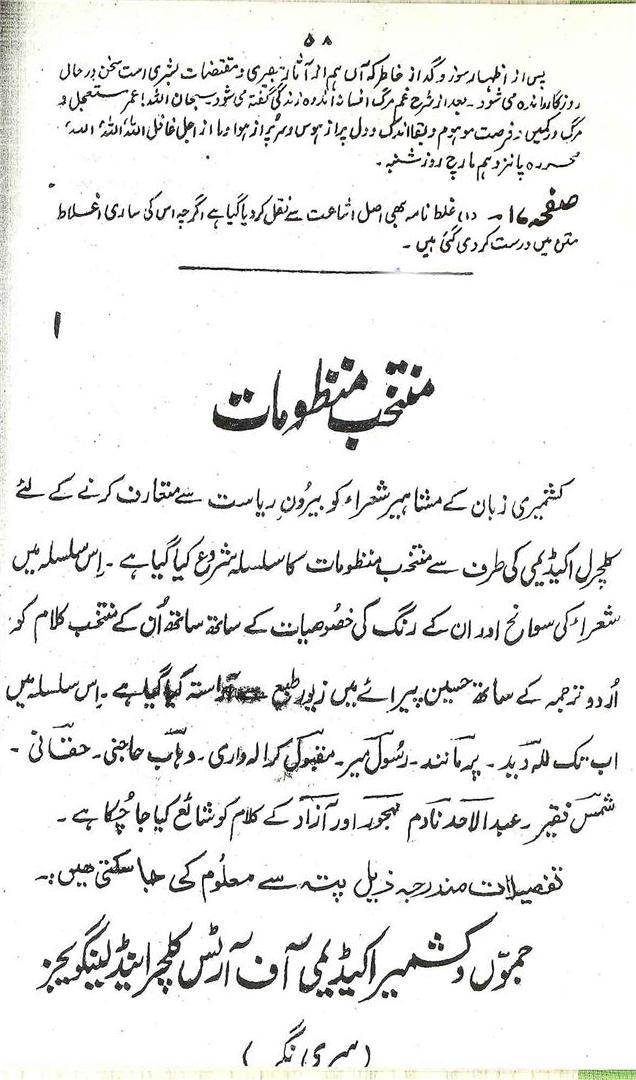 ۵۸
پس از اظہار سوز و گداز خاطر کہ آں ہم از آثار بصری و مقتضات بشری است سخن در حال
روزگار راندہ می شود۔ بعد از شرح غم مرگ افسانہ اندوہ زندگی گفتہ می شود سبحان اللہ! عمر مستعجل و
مرگ در کمیں، فرصت موہوم و بقا اندک و دل پر از ہوس و سر پر از ہوا و ما از اجل غافل اللہ، اللہ، اللہ،
محررہ پانزدہم مارچ روز شنبہ۔
صفحہ ۱۶۔ (۱) غلط نامہ بھی اصل اشاعت سے نقل کر دیا گیا ہے اگرچہ اس کی ساری اغلاط
متن میں درست کر دی گئی ہیں۔
ا
منتخب منظومات
کشمیری زبان کے مشاہیر شعراء کو بیرونِ ریاست سے متعارف کرنے کے لئے
کلچرل اکیڈیمی کی طرف سے منتخب منظومات کا سلسلہ شروع کیا گیا ہے۔ اِس سلسلہ میں
شعراء کی سوانح اور ان کے رنگ کی خصُوصیات کے ساتھ ساتھ اُن کے منتخب کلام کو
اُردو ترجمہ کے ساتھ حسین پیرائے میں زیورِ طبع سے آراستہ کیا گیا ہے۔ اِس سلسلہ میں
اب تک للہ دید۔ پرمانند۔ رسُول میر۔ مقبول کرالہ واری۔ وہاب حاجنی۔ حقانی۔
شمس فقیر۔ عبدالاحد نادم مہجور اور آزاد کے کلام کو شائع کیا جا چُکا ہے۔
تفصیلات مندرجہ ذیل پتہ سے معلُوم کی جا سکتی ھیں:۔
جموّں و کشمیر اکیڈیمی آف آرٹس کلچر اینڈ لینگویجز
(سری نگر)